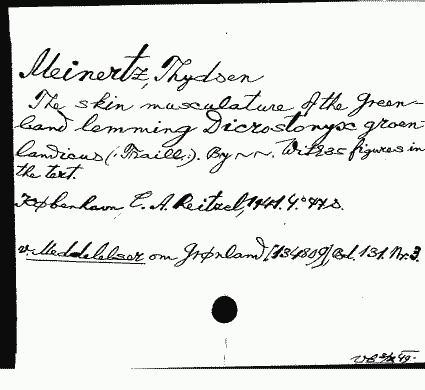 Meinertz, Thydsen
The skin musculature of the Green-
land lemming Dicrostonyx groen-
landicus (Traill.). By ~~. With 35 figures in
the text.
København, C. A. Reitzel, 1941. 4° 47 s.
v. Meddelelser om Grønland [134809] Bd. 131. Nr. 3.